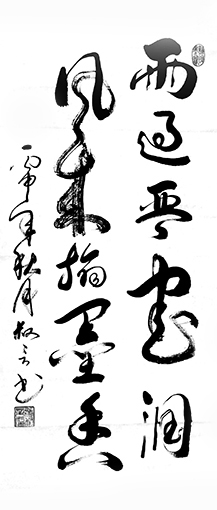 雨過琴書潤
風來翰墨香
丙申年秋月書